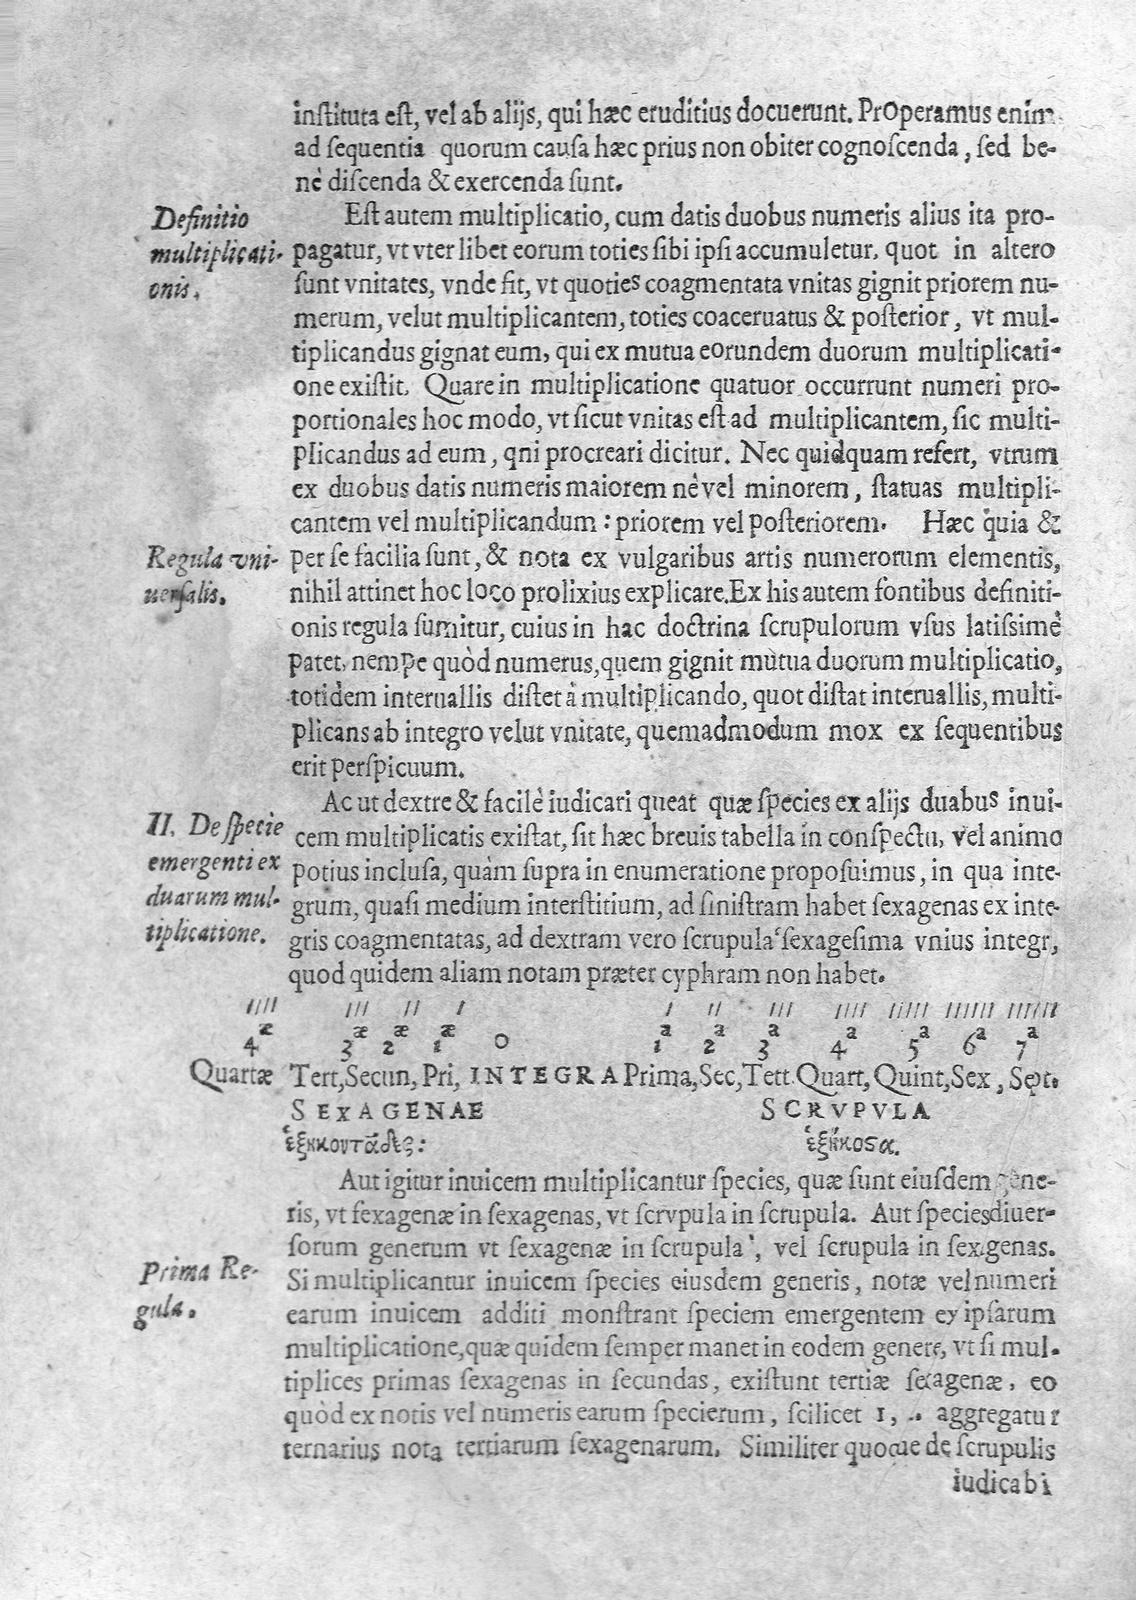 inſtituta eſt, vel ab alijs, qui hæc eruditius docuerunt. PrOperamus enim
ad ſequentia quorum cauſa hæc prius non obiter cognoſcenda, ſed be-
nè diſcenda & exercenda ſunt.
Definitio
multiplicati-
onis.
Eſt autem multiplicatio, cum datis duobus numeris alius ita pro-
pagatur, vt vter libet eorum toties ſibi ipſi accumuletur, quot in altero
ſunt vnitates, vnde fit, vt quoties coagmentata vnitas gignit priorem nu-
merum, velut multiplicantem, toties coaceruatus & poſterior, vt mul-
tiplicandus gignat eum, qui ex mutua eorundem duorum multiplicati-
one exiſtit. Quare in multiplicatione quatuor occurrunt numeri pro-
portionales hoc modo, vt ſicut vnitas eſt ad multiplicantem, ſic multi-
plicandus ad eum, qni procreari dicitur. Nec quidquam refert, vtrum
ex duobus datis numeris maiorem nè vel minorem, ſtatuas multipli-
cantem vel multiplicandum: priorem vel poſteriorem. Hæc quia &
Regula vni-
uerſalis.
per ſe facilia ſunt, & nota ex vulgaribus artis numerorum elementis,
nihil attinet hoc loco prolixius explicare. Ex his autem fontibus definiti-
onis regula ſumitur, cuius in hac doctrina ſcrupulorum vſus latiſsimè
patet, nempe quòd numerus, quem gignit mutua duorum multiplicatio,
totidem interuallis diſtet à multiplicando, quot diſtat interuallis, multi-
plicans ab integro velut vnitate, quemadmodum mox ex ſequentibus
erit perſpicuum.
II. De ſpecie
emergenti ex
duarum mul-
tiplicatione.
Ac ut dextre & facilè iudicari queat quæ ſpecies ex alijs duabus inui-
cem multiplicatis exiſtat, ſit hæc breuis tabella in conſpectu, vel animo
potius incluſa, quàm ſupra in enumeratione propoſuimus, in qua inte-
grum, quaſi medium interſtitium, ad ſiniſtram habet ſexagenas ex inte-
gris coagmentatas, ad dextram vero ſcrupula ſexageſima vnius integri,
quod quidem aliam notam præter cyphram non habet.
//// /// // / / // /// //// ///// ////// //////
4æ 3æ 2æ 1æ 0 1a 2a 3a 4a 5a 6a 7a
Quartæ Tert, Secun, Pri, INTEGRA Prima, Sec, Tett. Quart, Quint, Sex, Sept.
SEXAGENAE SCRVPVLA
ἑξηκουτάδες: ἑξήκοσα.
Aut igitur inuicem multiplicantur ſpecies, quæ ſunt eiuſdem gene-
ris, vt ſexagenæ in ſexagenas, vt ſcrvpula in ſcrupula. Aut ſpecies diuer-
ſorum generum vt ſexagenæ in ſcrupula, vel ſcrupula in ſexagenas.
Prima Re-
gula.
Si multiplicantur inuicem ſpecies eiusdem generis, notæ vel numeri
earum inuicem additi monſtrant ſpeciem emergentem ex ipſarum
multiplicatione, quæ quidem ſemper manet in eodem genere, vt ſi mul-
tiplices primas ſexagenas in ſecundas, exiſtunt tertiæ ſexagenæ, eo
quòd ex notis vel numeris earum ſpecierum, ſcilicet 1, aggregatur
ternarius nota tertiarum ſexagenarum. Similiter quoque de ſcrupulis
iudicabi